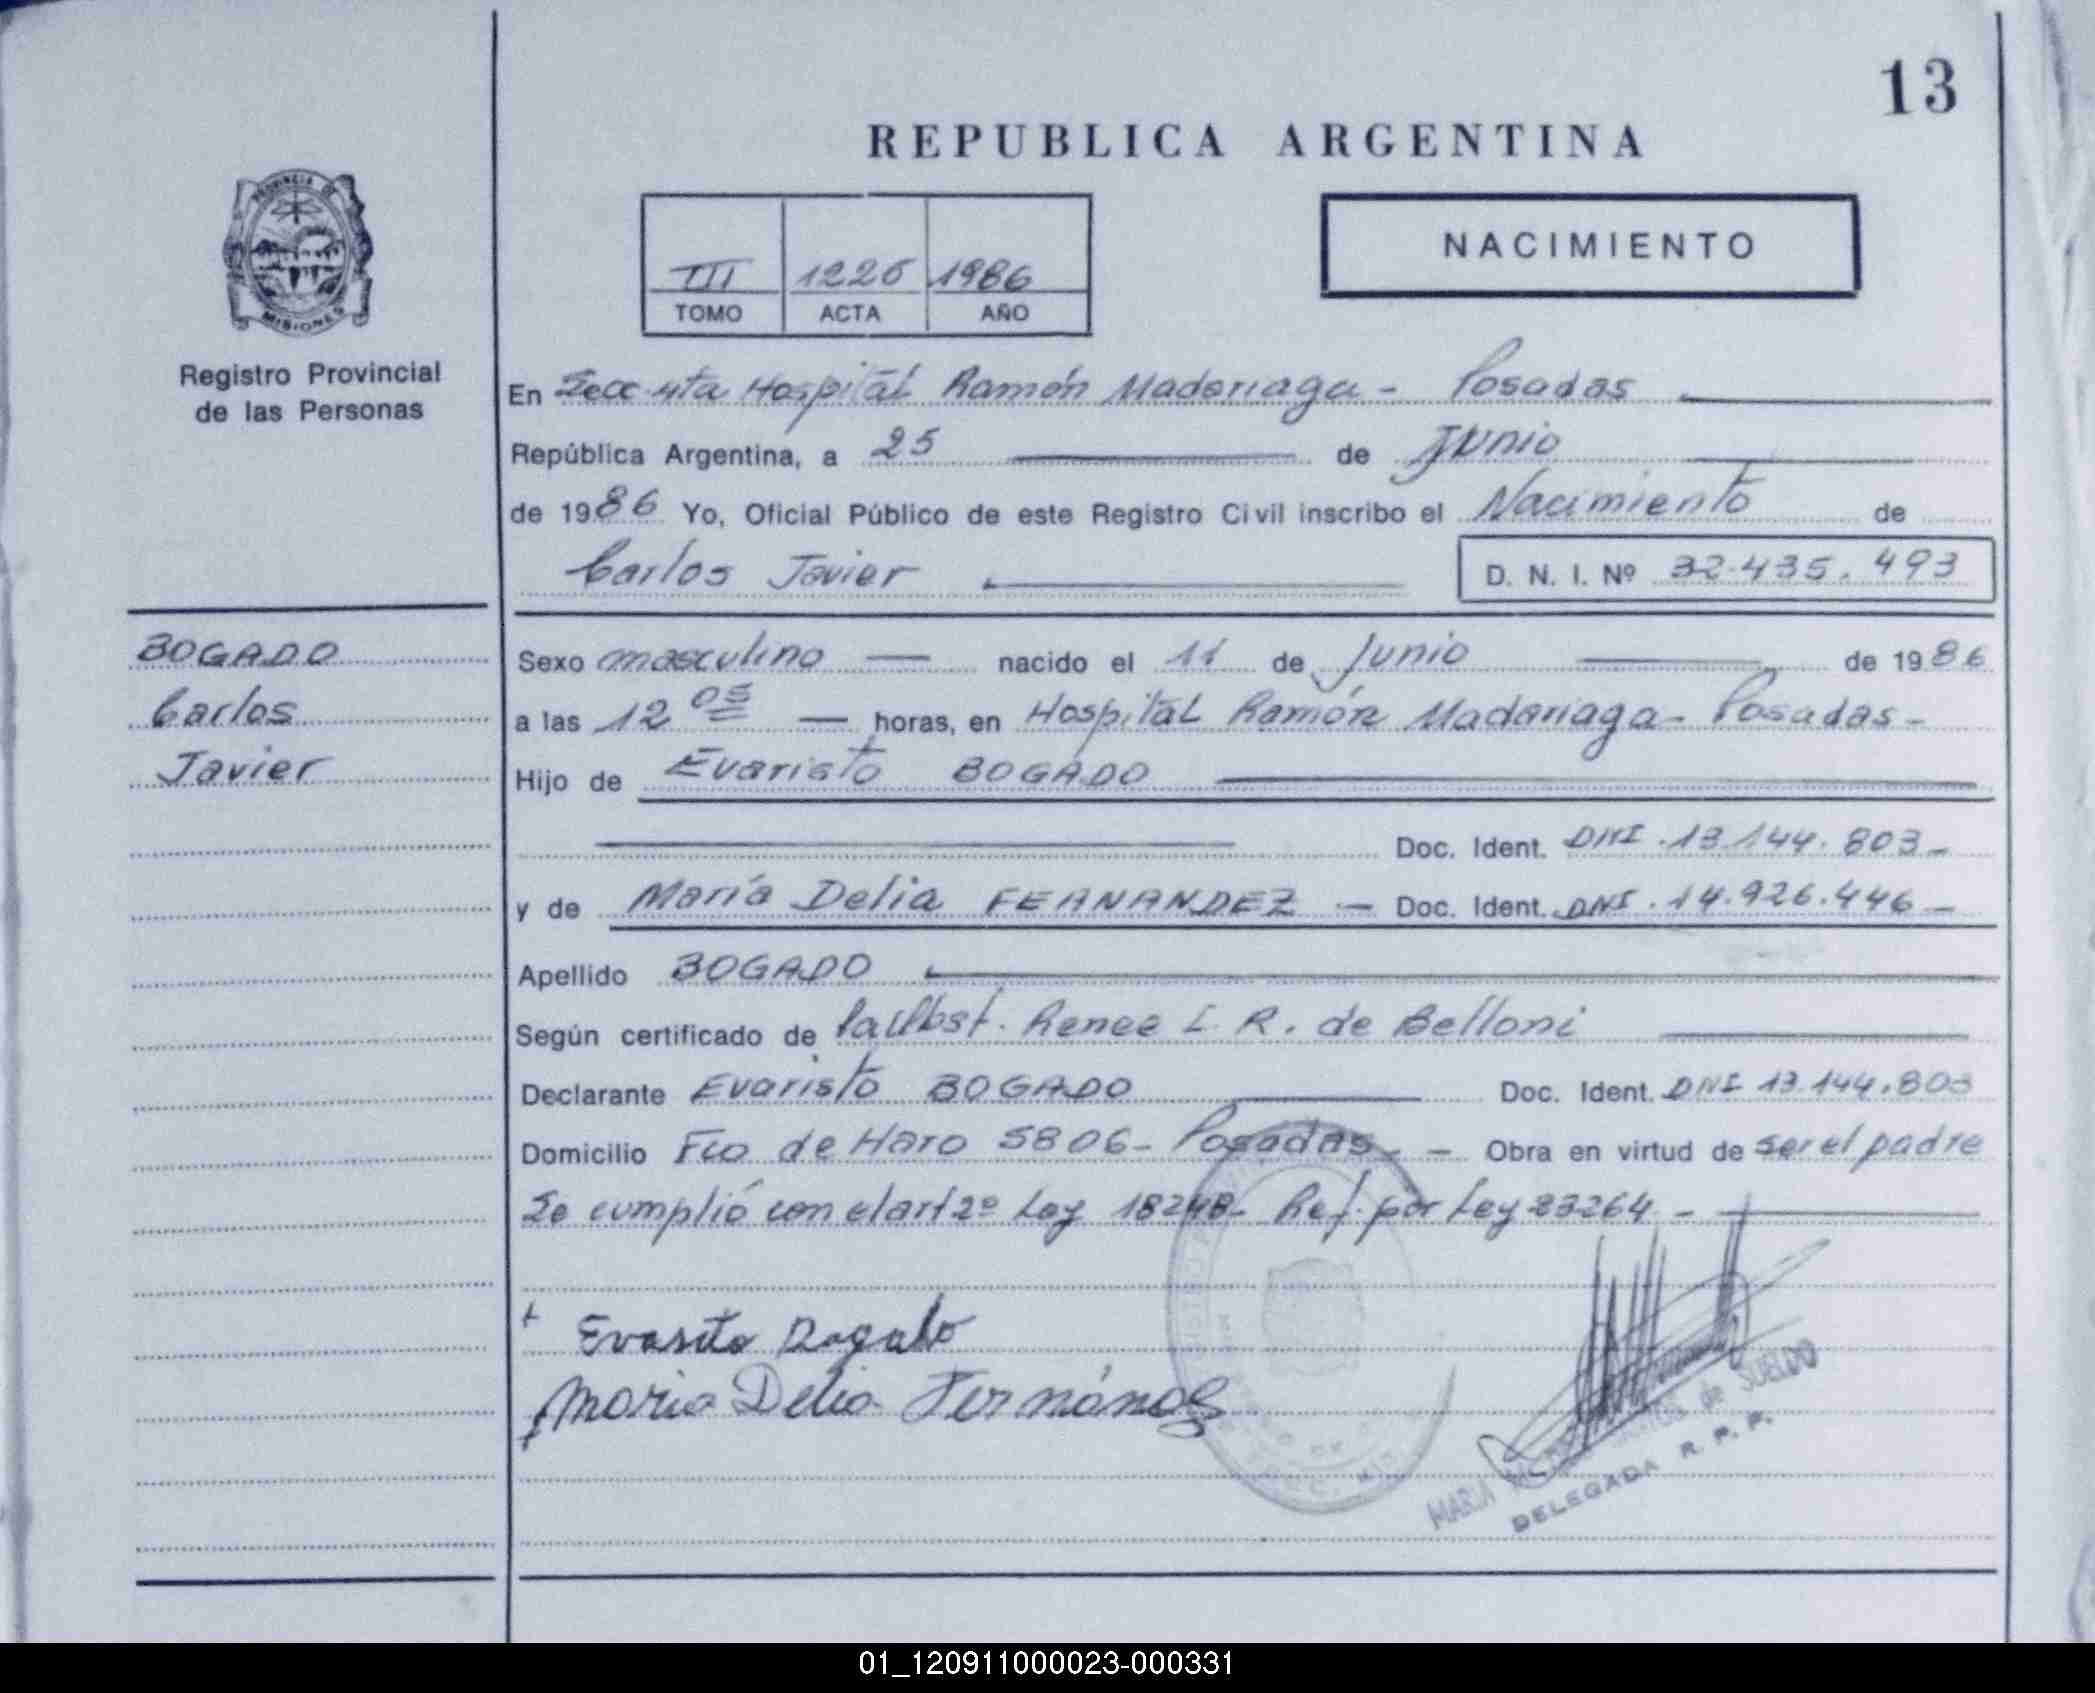 13
REPUBLICA ARGENTINA
PROVINCIA DE
MISIONES
Registro Provincial
de las Personas
III 1226 1986
TOMO ACTA AÑO
NACIMIENTO
En Secc 4ta Hospital Ramón Madariaga - Posadas
República Argentina, a 25 de Junio
de 1986 Yo, Oficial Público de este Registro Civil inscribo el Nacimiento de
Carlos Javier D. N. I. Nº 32.435.493
BOGADO
Carlos
Javier
Sexo masculino nacido el 11 de Junio de 1986
a las 12 05 horas, en Hospital Ramón Madariaga - Posadas -
Hijo de Evaristo BOGADO
Doc. Ident. DNI. 13.144.803 -
y de María Delia FERNANDEZ - Doc. Ident. DNI. 14.926.446 -
Apellido BOGADO
Según certificado de Renee I. R. de Belloni
Declarante Evaristo BOGADO Doc. Ident. DNI 13.144.803
Domicilio Fco de Haro 5806 - Posadas - - Obra en virtud de ser el padre
Se cumplió con el art 2º Ley 18248 - Ref. por Ley 23264 -
Evaristo Bogado
Maria Delia Fernández
MARIA de SUELDO
DELEGADA R. P. P.
01_120911000023-000331